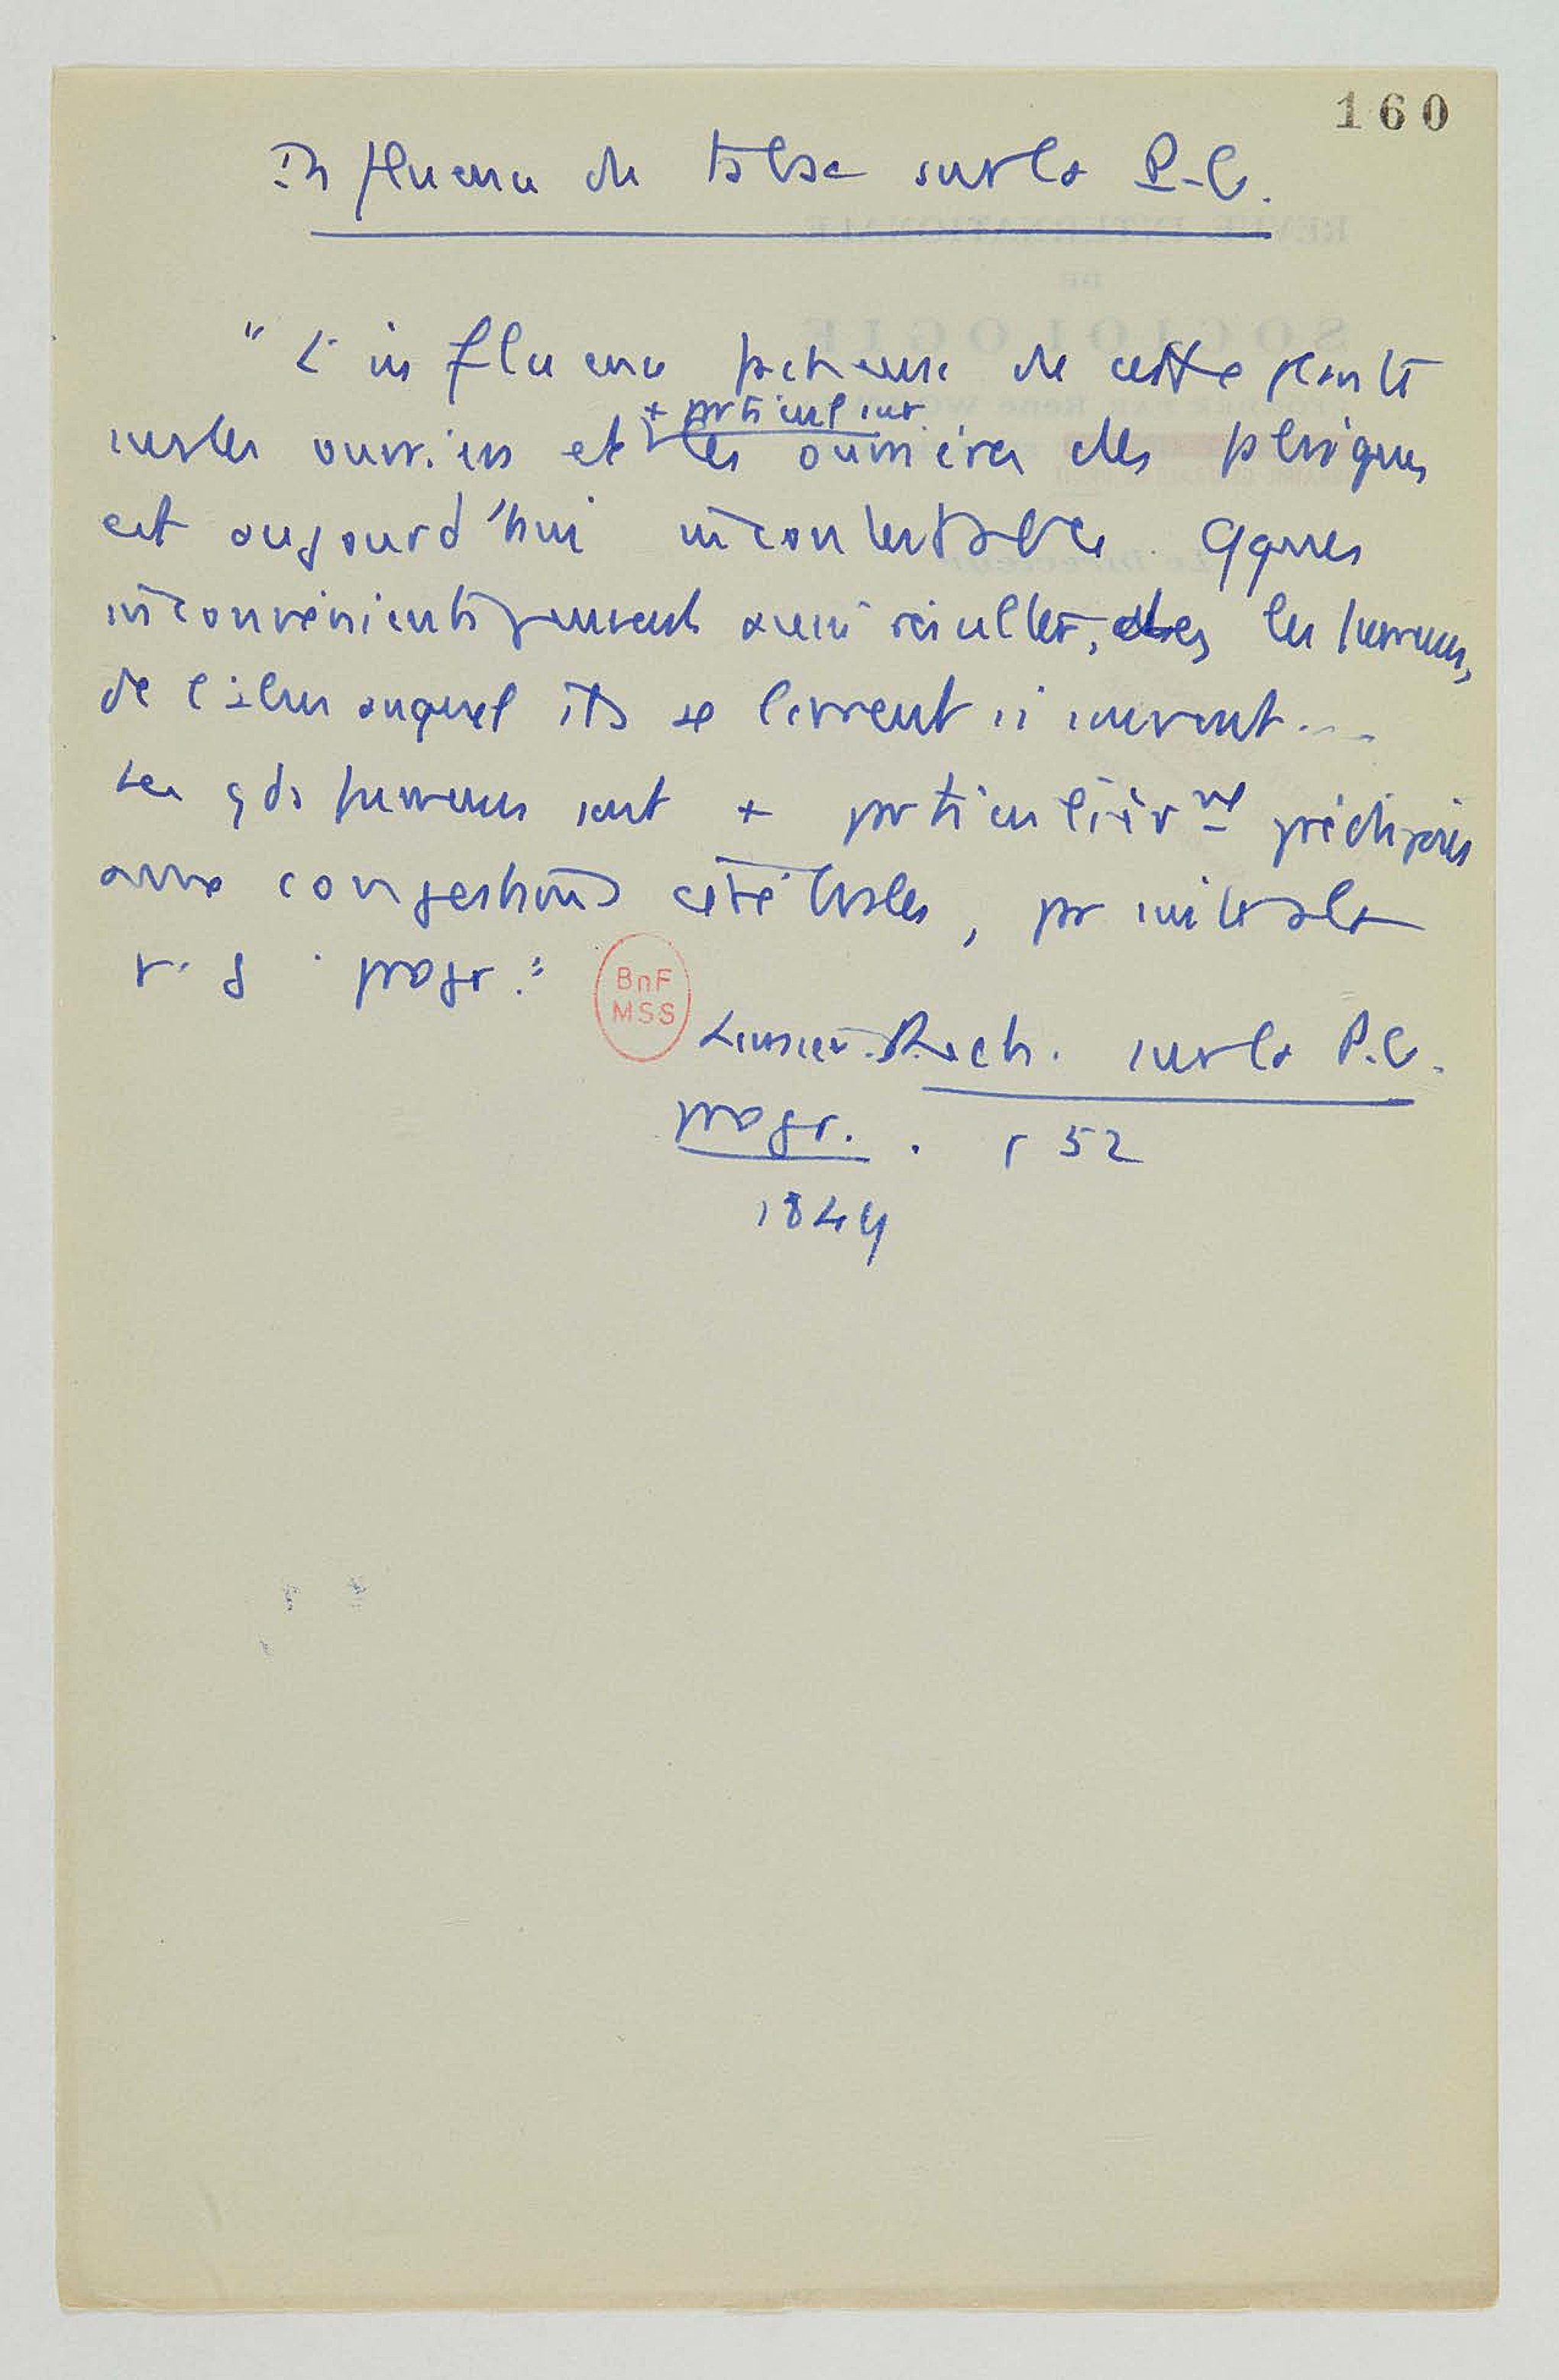 160
Influence de tabac sur la P.G.
"L'influence fâcheuse de cette plante
+ particul sur
sur les ouvriers et les ouvrières des fabriques
est aujourd'hui incontestable. Qques
inconvénients peuvent aussi résulter, chez les fumeurs,
de l'abus auquel ils se livrent si souvent...
Les gds fumeurs sont + particulièrmt prédisposés
aux congestions cérébrales, par suite à la
p. g. progr."
BnF
MSS
Rech. sur la P.G.
progr. . p 52
1849